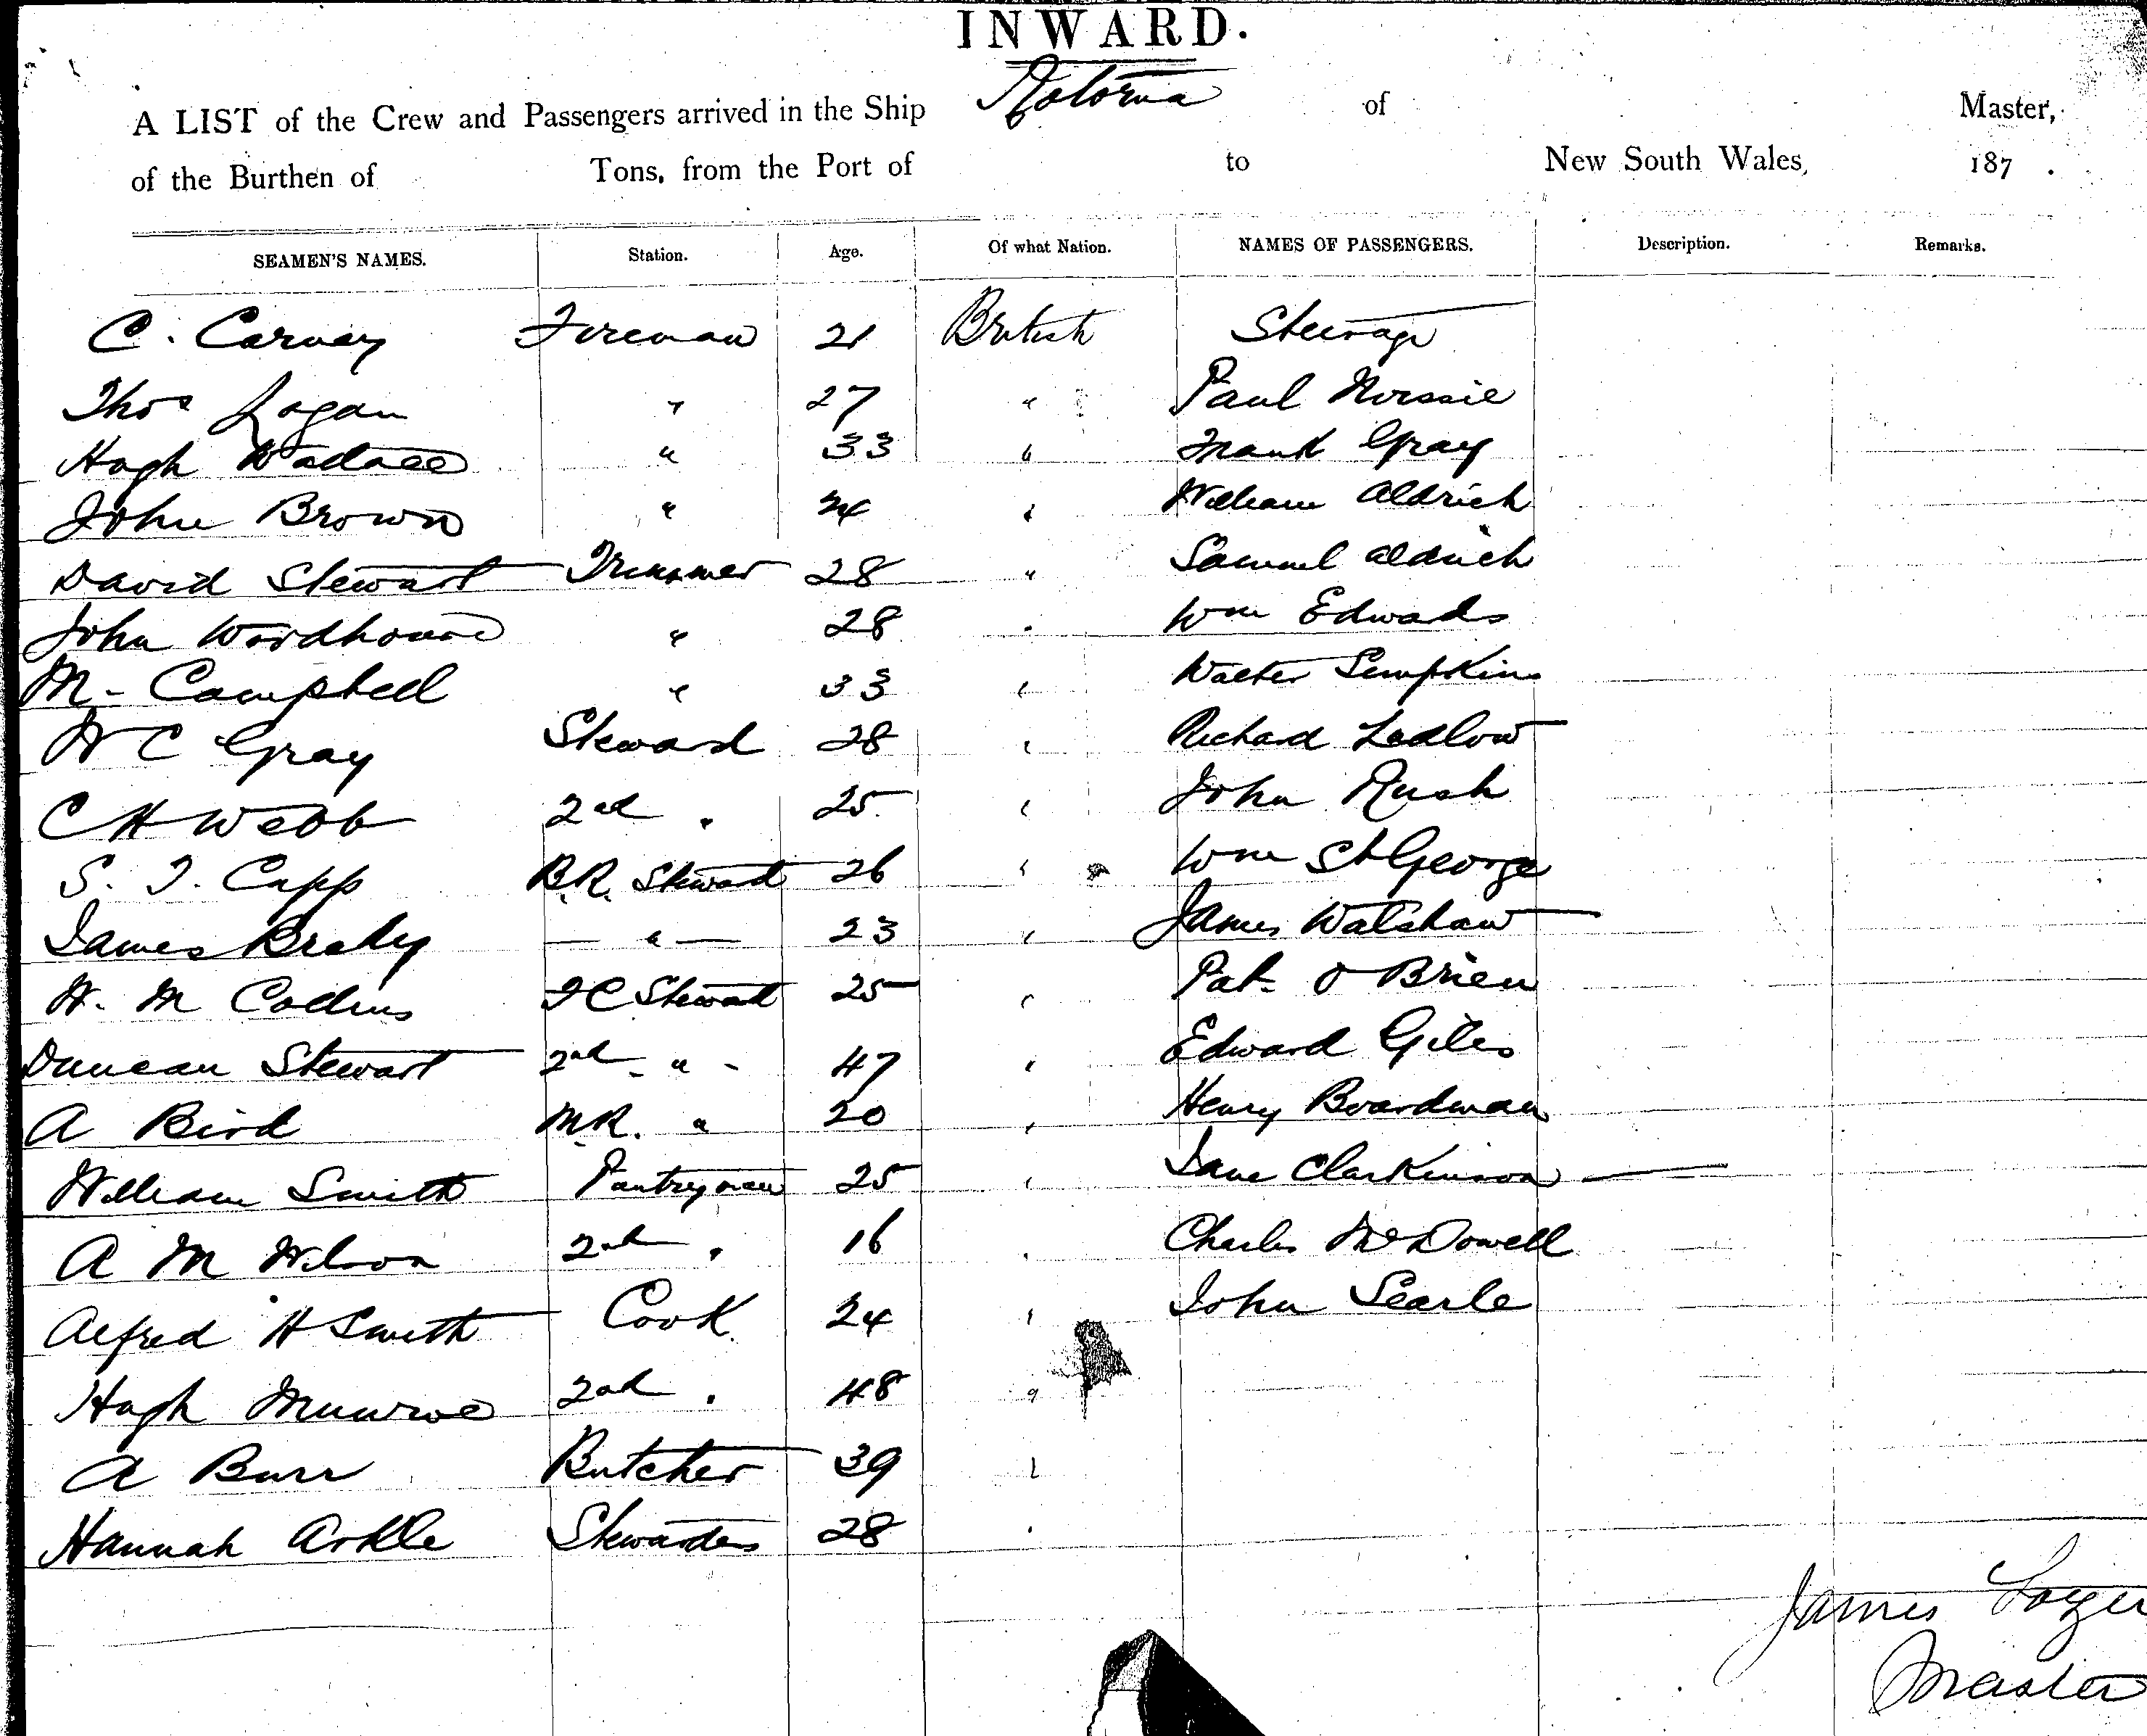 INWARD.
A LIST of the Crew and Passengers arrived in the Ship Rotorua of Master,
of the Burthen of Tons, from the Port of to New South Wales, 187 .
SEAMEN'S NAMES. Station. Age. Of what Nation. NAMES OF PASSENGERS. Description. Remarks.
C. Carney Fireman 21 British Steerage
Thos Logan " 27 " Paul
Hugh Wallace " 33 " Frank Gray
John Brown " 24 " William Aldrich
David Stewart Trimmer 28 " Samuel Aldrich
John Woodhouse " 28 " Wm Edwads
M - Campbell " 33 " Walter
W C Gray Steward 28 " Richard Ludlow
C H Webb 2nd " 25 " John Rush
S. T. Capp B.R. Steward 26 " Wm St George
James Brady — " — 23 " James Watshaw
W. M Collins F C Steward 25 " Pat O Brien
Duncan Stewart 2nd - " - 47 " Edward Giles
A Bird M.R. " 20 " Henry Boardman
William Smith Pantryman 25 " Jane Clarkinson —
A M Wilson 2nd " 16 " Charles McDowell
Alfred H Smith Cook 24 " John Searle
Hugh Munroe 2nd " 48 "
A Burr Butcher 39 "
Hannah Arkle Stewardess 28 "
James
Master